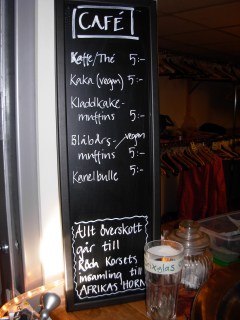 CAFÉ
Kaffe/Thé 5:-
Kaka (vegan) 5:-
Kladdkake-
muffins 5:-
Blåbärs- vegan
muffins 5:-
Kanelbulle 5:-
Allt överskott
går till
Röda Korsets
insamling till
AFRIKAS HORN